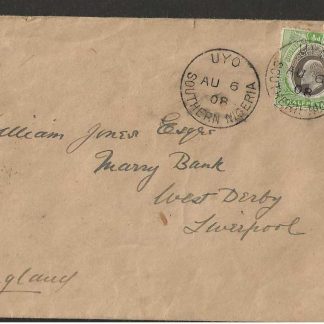 UYO
AU 6
08
SOUTHERN NIGERIA
U 6
08
William Jones Esqre
Marry Bank
West Derby
Liverpool
England